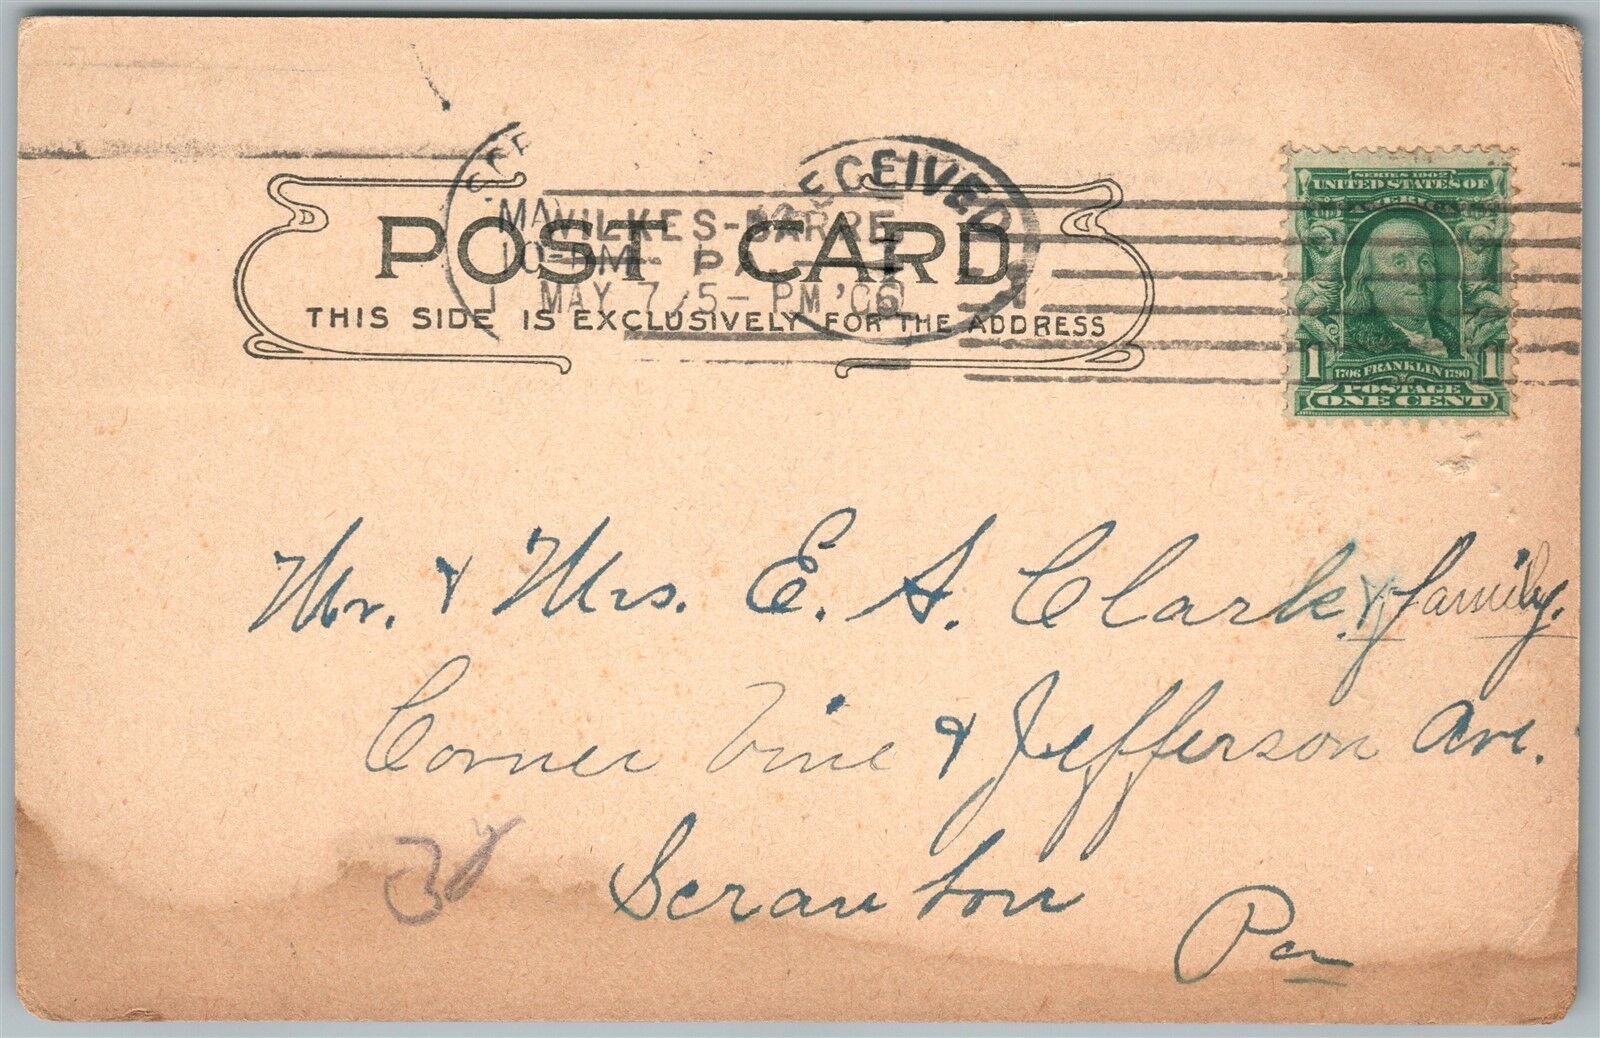 RECEIVED
WILKES-BARRE,
10-PM PA
MAY 7 5-PM '06
POST CARD
THIS SIDE IS EXCLUSIVELY FOR THE ADDRESS
SERIES 1902
UNITED STATES OF
AMERICA
1 1706 FRANKLIN 1790 1
POSTAGE
ONE CENT
Mr. & Mrs. E. S. Clark & family.
Corner Vine & Jefferson Ave.
Scranton
Pa